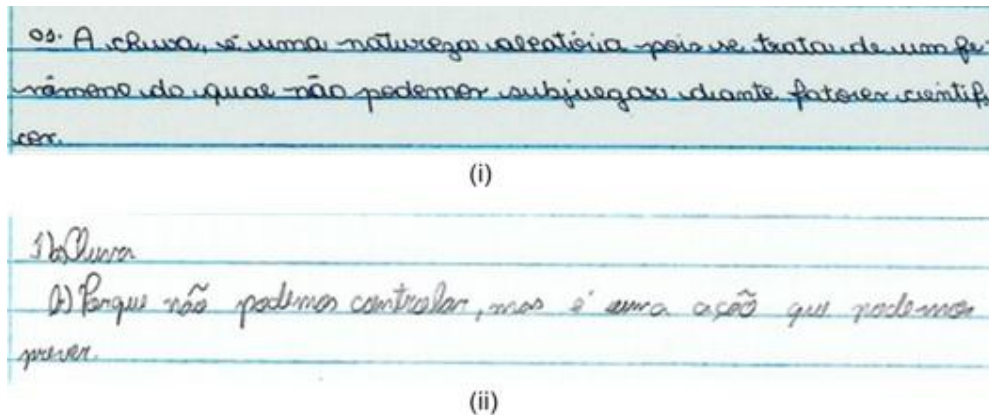 01. A chuva, é uma natureza aleatória pois se trata de um fe-
nômeno do qual não podemos subjugar diante fatores científi
cos.
(i)
1) a) Chuva
b) Porque não podemos controlar, mas é uma ação que podemos
prever.
(ii)